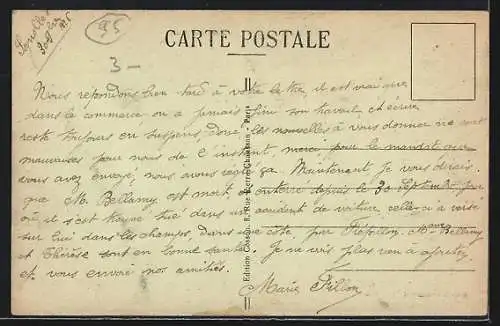 95
CARTE POSTALE
3 -
Nous répondons bien tard à votre lettre, il est vrai que
dans le commerce on a jamais fini son travail, et écrire
reste toujours en suspens. les nouvelles à vous donner ne sont
mauvaises pour nous de l'instant, merci pour le mandat que
vous avez envoyé, nous avons Maintenant je vous dirais
que M. Bellamy est mort, et enterré depuis le 30 Septembre, jour
où il s'est trouvé tué dans un accident de voiture, celle-ci a versé
sur lui dans les champs, dans une côte par Mme Bellamy
et Thérèse sont en bonne santé. Je ne vois plus rien à
et vous envoie nos amitiés.
Marie Fillon
Edition Paris